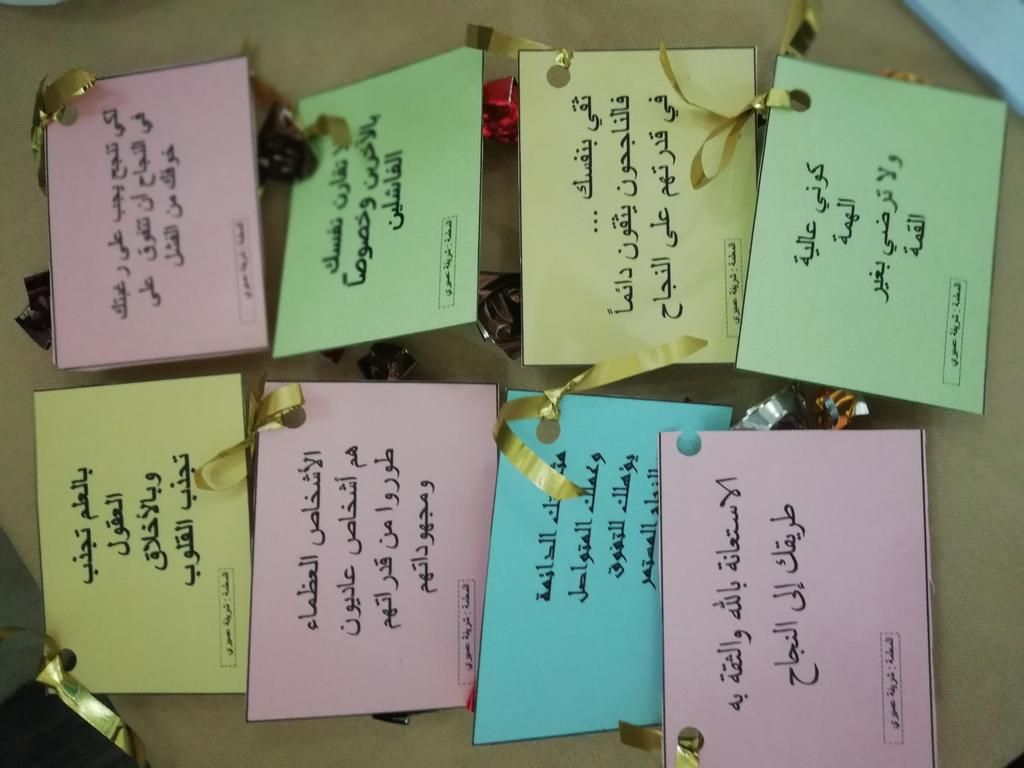 لكي تنجح يجب على رغبتك
في النجاح أن تتفوق على
خوفك من الفشل
المعلمة : شريفة عسيري
لا تقارن نفسك
بالآخرين وخصوصاً
الفاشلين
المعلمة : شريفة عسيري
ثقي بنفسك ...
فالناجحون يثقون دائماً
في قدرتهم على النجاح
المعلمة : شريفة عسيري
كوني عالية
الهمة
ولا ترضي بغير
القمة
المعلمة : شريفة عسيري
بالعلم تجذب
العقول
وبالأخلاق
تجذب القلوب
المعلمة : شريفة عسيري
الأشخاص العظماء
هم أشخاص عاديون
طوروا من قدراتهم
ومجهوداتهم
المعلمة : شريفة عسيري
الدائمة
وعملك المتواصل
يؤهلك للتفوق
المستمر
الاستعانة بالله والثقة به
طريقك إلى النجاح
المعلمة : شريفة عسيري